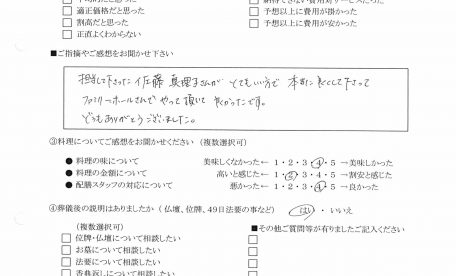 平均的だと思った
適正価格だと思った
割高だと思った
正直よくわからない
予想以上に費用が掛かった
予想以上に費用が安かった
■ご指摘やご感想をお聞かせ下さい
担当して下さった 佐藤 真理さんが とてもいい方で 本当に良くして下さって
ファミリーホールさんで やって頂いて 良かったです。
どうもありがとうございました。
③料理についてご感想をお聞かせください（複数選択可）
● 料理の味について 美味しくなかった← 1・2・3・4・5 →美味しかった
● 料理の金額について 高いと感じた← 1・2・3・4・5 →割安と感じた
● 配膳スタッフの対応について 悪かった← 1・2・3・4・5 →良かった
④葬儀後の説明はありましたか（仏壇、位牌、49日法要の事など） はい・いいえ
（複数選択可） ■その他ご質問等が有りましたご記入ください
位牌・仏壇について相談したい
お墓について相談したい
法要について相談したい
香典返しについて相談したい